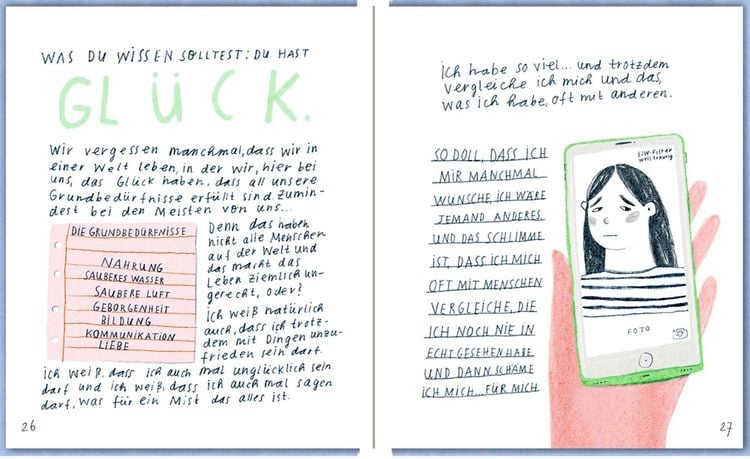 WAS DU WISSEN SOLLTEST: DU HAST
GLÜCK.
Wir vergessen manchmal, dass wir in
einer Welt leben, in der wir, hier bei
uns, das Glück haben, dass all unsere
Grundbedürfnisse erfüllt sind. Zumin-
dest bei den Meisten von uns...
DIE GRUNDBEDÜRFNISSE
NAHRUNG
SAUBERES WASSER
SAUBERE LUFT
GEBORGENHEIT
BILDUNG
KOMMUNIKATION
LIEBE
Denn das haben
nicht alle Menschen
auf der Welt und
das macht das
Leben ziemlich un-
gerecht, oder?
ich weiß natürlich
auch, dass ich trotz-
dem mit Dingen unzu-
frieden sein darf.
ich weiß, dass ich auch mal unglücklich sein
darf und ich weiß, dass ich auch mal sagen
darf, was für ein Mist das alles ist.
26
ich habe so viel... und trotzdem
vergleiche ich mich und das,
was ich habe, oft mit anderen.
SO DOLL, DASS ICH
MIR MANCHMAL
WÜNSCHE, ICH WÄRE
JEMAND ANDERES
UND DAS SCHLIMME
IST, DASS ICH MICH
OFT MIT MENSCHEN
VERGLEICHE, DIE
ICH NOCH NIE IN
ECHT GESEHEN HABE
UND DANN SCHÄME
ICH MICH... FÜR MICH
S/W-Filter
weil traurig
FOTO
27